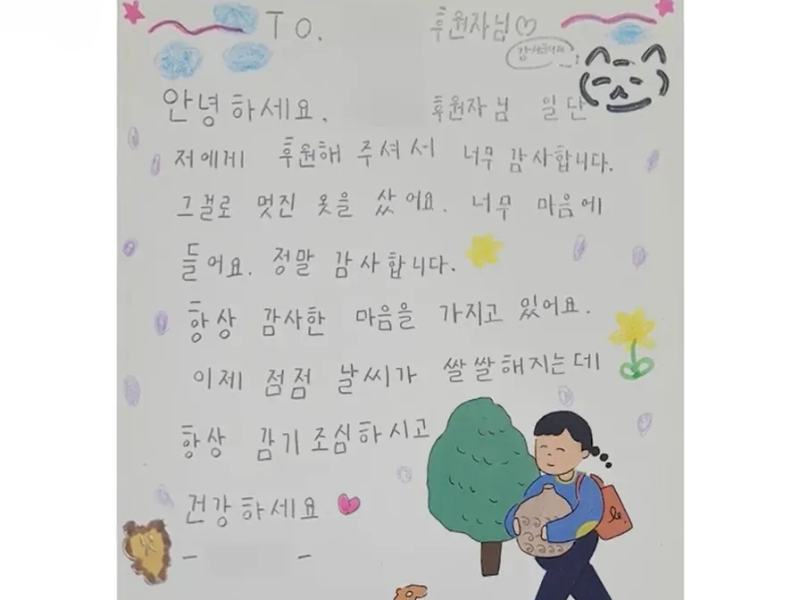 To. 후원자님♡
감사합니다
안녕하세요. 후원자님 일단
저에게 후원해 주셔서 너무 감사합니다.
그걸로 멋진 옷을 샀어요. 너무 마음에
들어요. 정말 감사합니다.
항상 감사한 마음을 가지고 있어요.
이제 점점 날씨가 쌀쌀해지는데
항상 감기조심하시고
건강하세요